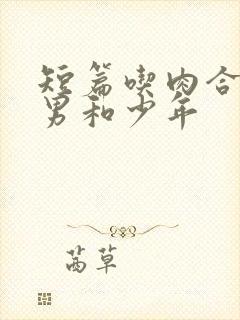 短篇喫肉合
男和少年
茜草